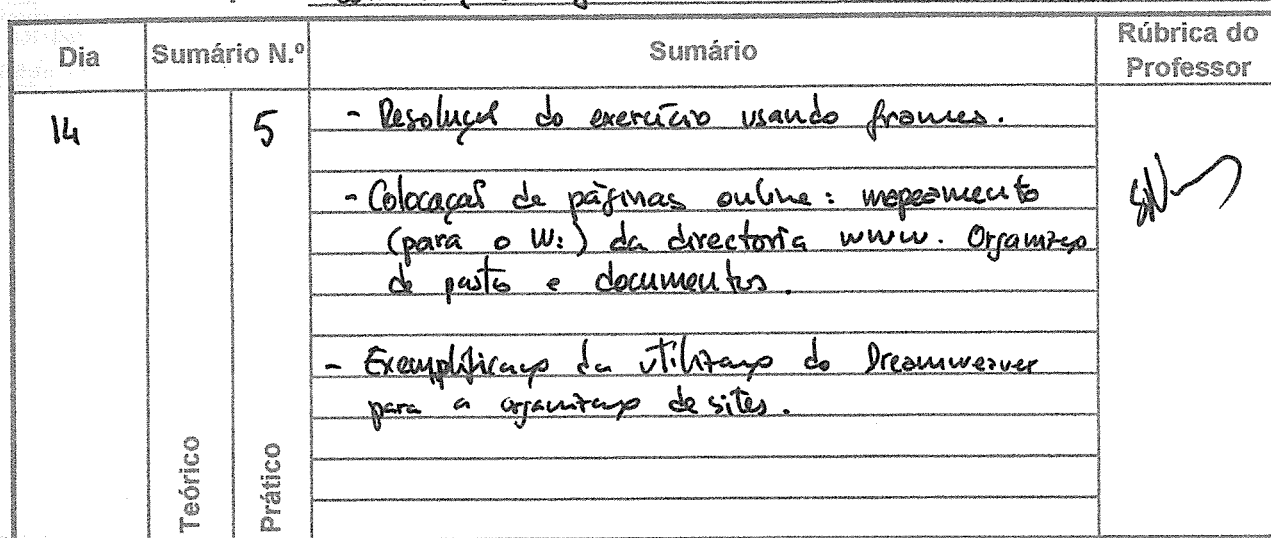 Dia Sumário N.º Sumário Rúbrica do Professor
14 5 - Resolução do exercício usando frames.
- Colocação de páginas online: mapeamento
(para o W:) da directoria www. Organização
de pastas e documentos.
- Exemplificação da utilização do Dreamweaver
para a organização de sites.
Teórico
Prático